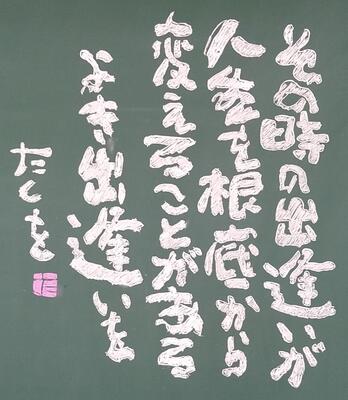 その時の出逢いが
人生を根底から
変えることがある
よき出逢いを
たくを